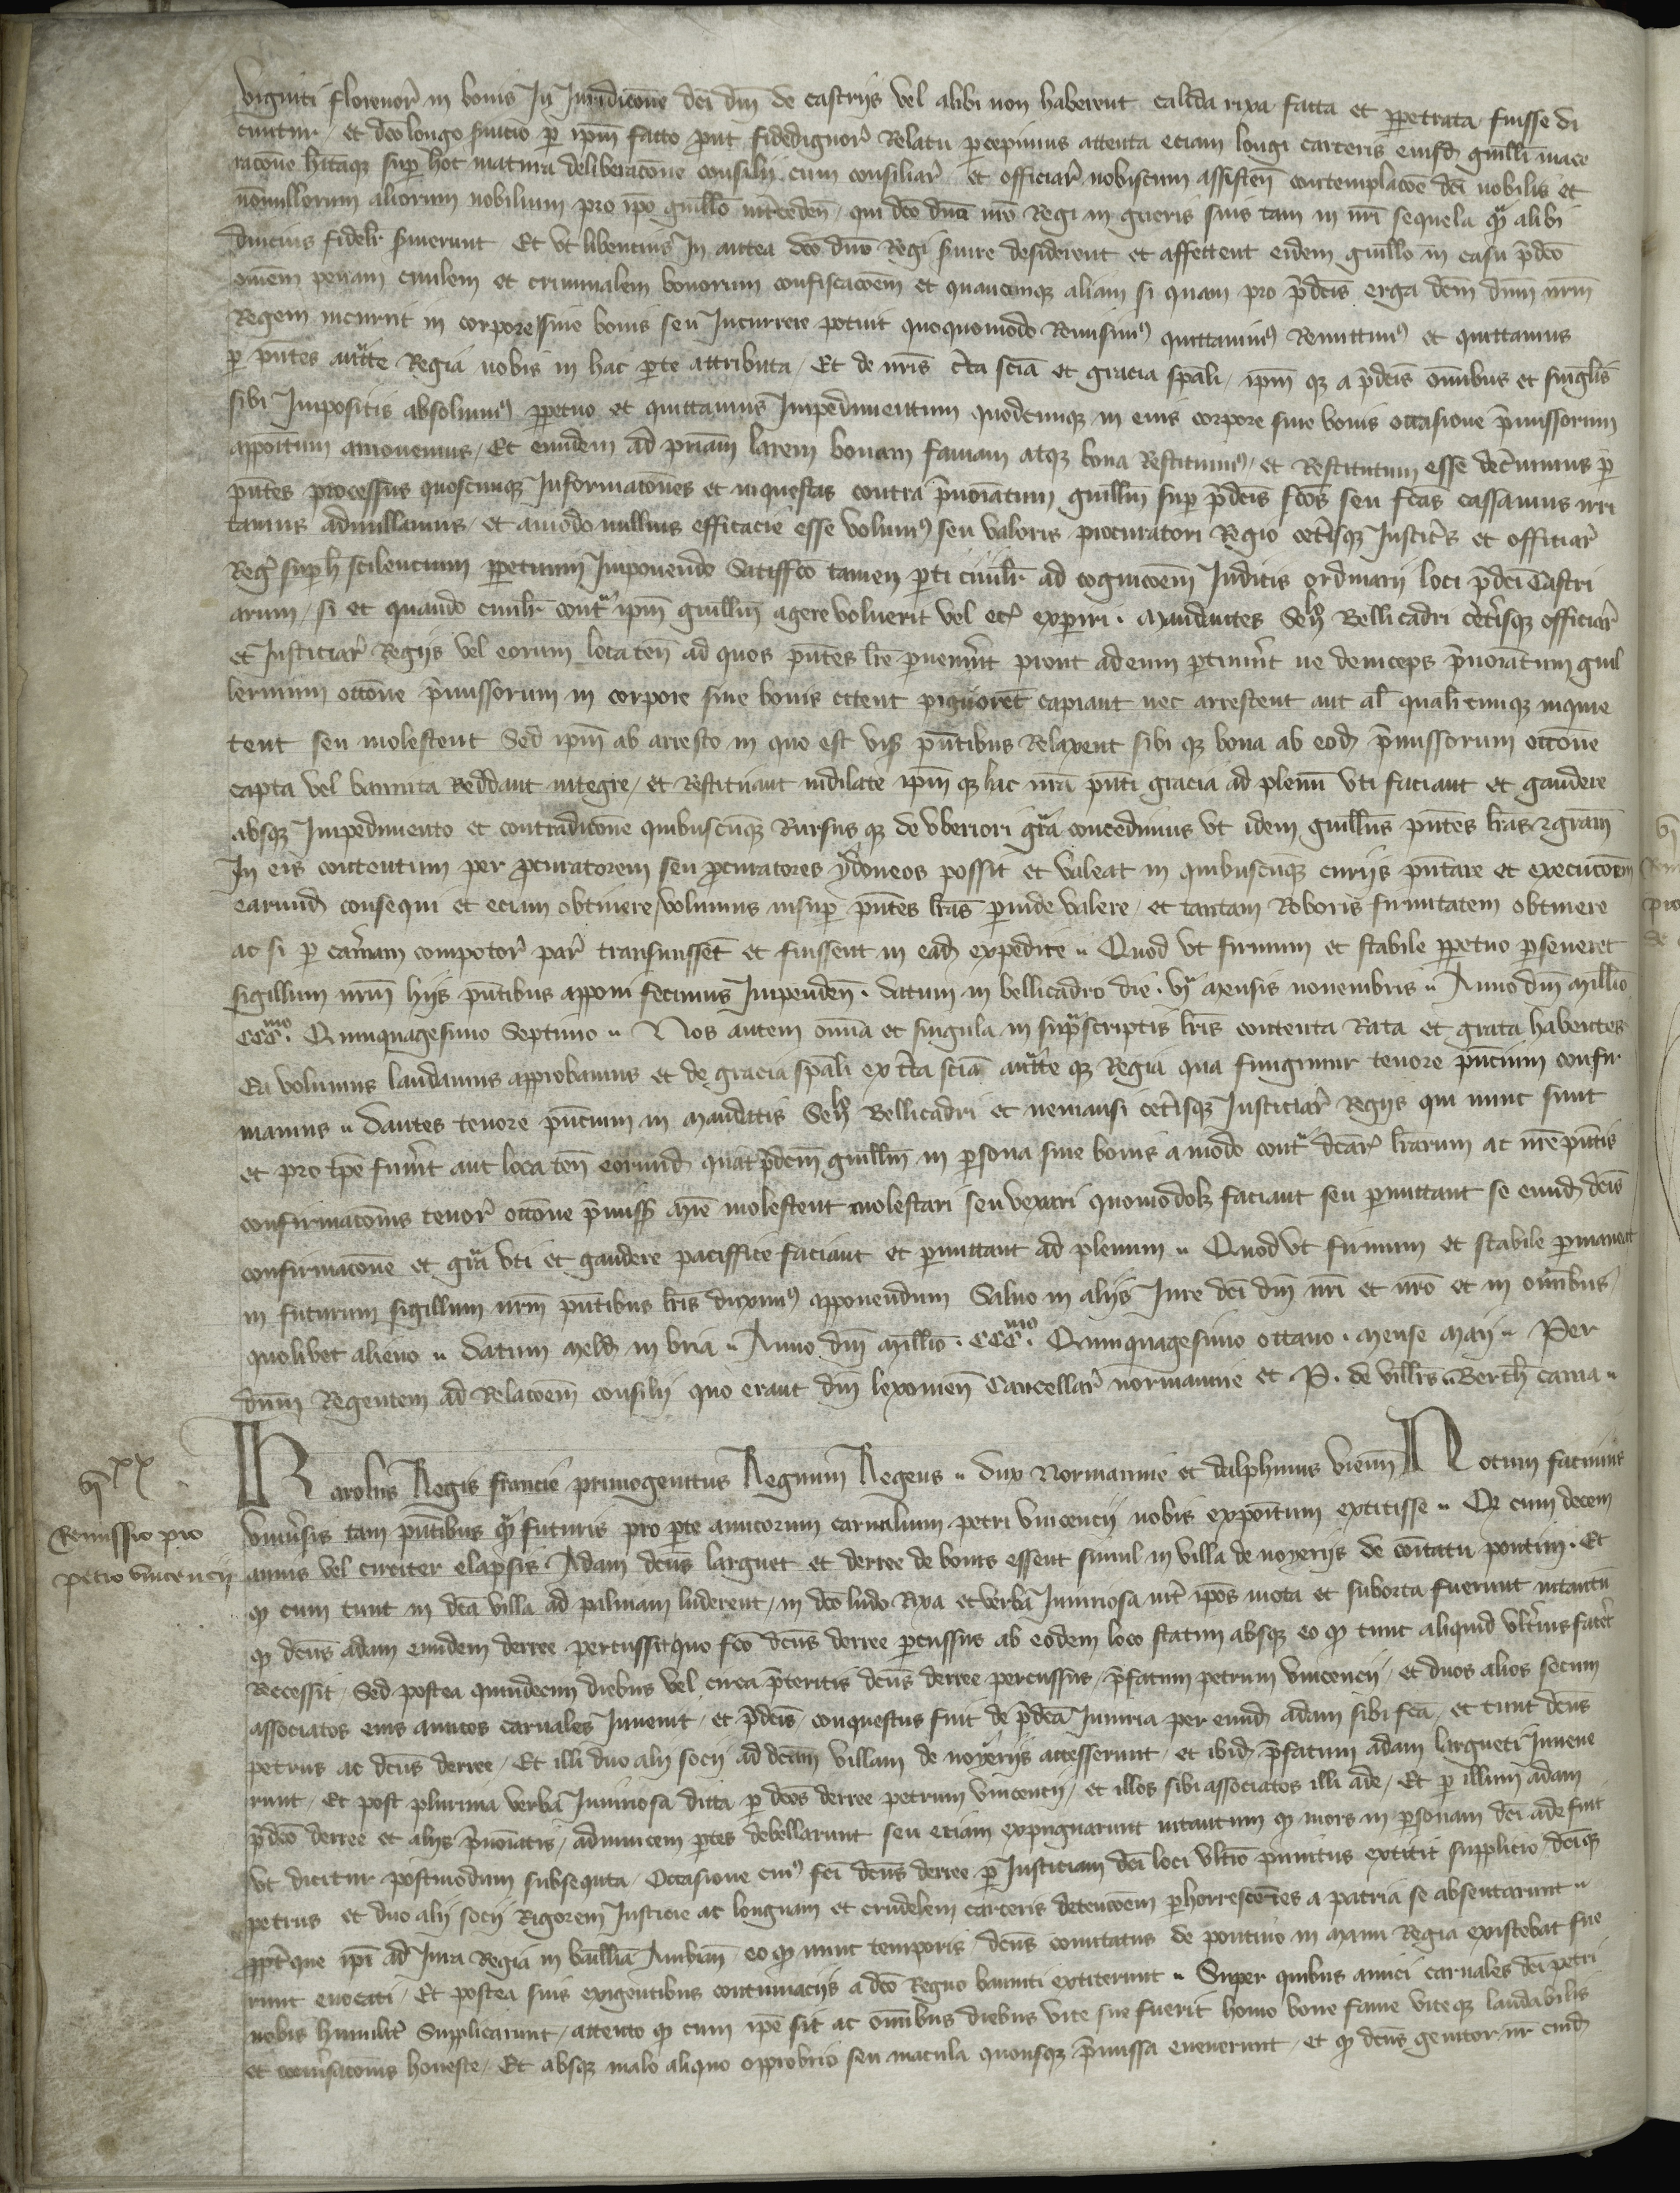 viginti florenor in bonis In Juridicone dci dni de castrijs vel alibi non haberent calida rixa facta et perpetrata fuisse di
cuntur et dco longo servicio per ipm facto prout fidedignor Relatu percepimus attenta eciam longi carceris eiusd guilli mace
racone hitaque super hoc matura deliberacone consilij cum consiliar et officiar nobiscum assisten contemplacoe dci nobilis et
nonnullorum aliorum nobilium pro ipo guillo interceden qui dco dno nro Regi in guerris suis tam in nri sequela qua alibi
diucius fidelr servierunt Et vt libencius In antea dco dno Regi servire desiderent et affectent eidem guillo in casu predco
omem penam civilem et criminalem bonorum confiscacoem et quamcunque aliam si quam pro predcis erga dcm dnm nrm
Regem incurrit in corpore sive bonis seu Incurrere potuit quoquomodo Remisimus quittavimus Remittimus et quittamus
per pntes auctte Regia nobis in hac parte attributa Et de nris certa scia et gracia spali ipm que a predcis omibus et singlis
sibi Impositis absolvimus perpetuo et quittamus Impedimentum quodcunque in eius corpore sive bonis occasione premissorum
appoitum amovemus Et eundem ad priam larem bonam famam atque bona Restituimus et Restitutum esse decernimus per
pntes processus quoscunque Informacones et inquestas contra prenoiatum guillm super predcis fcos seu fcas cassamus irri
tamus adnullamus et amodo nullius efficacie esse volumus seu valoris procuratori Regio ceterisque Justiciis et officiar
Reg super h scilencium perpetuum Imponendo Satisffco tamen parti civilr ad cognicoem Judicis ordinarij loci predci Castri
arum si et quando civilr contra ipm guillm agere voluerit vel ec experiri Mandantes Sen Bellicadri ceterisque officiar
et Justiciar Regijs vel eorum loca ten ad quos pntes lre pervenerint prout ad eum pertinuerit ne deinceps prenoiatum guil
lermum occone premissorum in corpore sive bonis pignorent capiant nec arrestent aut al qualitercunque inquie
tent seu molestent Sed ipm ab arresto in quo est vis pntibus Relaxent sibi que bona ab eod premissorum occone
capta vel bannita Reddant integre et Restituant indilate ipm que hac nra pnti gracia ad plenu vti faciant et gaudere
absque Impedimento et contradicone quibuscunque Rursus que de vberiori gra concedimus vt idem guillus pntes lras et gram
In eis contentam per procuratorem seu procuratores ydoneos possit et valeat in quibuscunque curijs pntare et execucoem
earund consequi et eciam obtinere volumus insuper pntes lras perinde valere et tantam Roboris firmitatem obtinere
ac si per camam compotor par transivissent et fuissent in ead expedite Quod vt firmum et stabile perpetuo perseveret
sigillum nrum hijs pntibus apponi fecimus Impenden datum in bellicadro die vja mensis novembris Anno dni millio
CCCmo Quinquagesimo Septimo Nos autem omia et singula in suprascriptis lris contenta Rata et grata habentes
Ea volumus laudamus approbamus et de gracia spali ex certa scia auctte que Regia qua fungimur tenore pncium confir
mamus dantes tenore pncium in mandatis Sen Bellicadri et nemausi ceterisque Justiciar Regijs qui nunc sunt
et pro tpe fuerint aut loca ten eorund quat predcm guillm in persona sive bonis amodo contra dcar lrarum ac nre pntis
confirmaconis tenor occone premiss mie molestent molestari seu vexari quomodolz faciant seu permittant se eund dcis
confirmacone et gra vti et gaudere paciffice faciant et permittant ad plenum Quod vt firmum et stabile permaneat
in futurum sigillum nrm pntibus lris duximus apponendum Salvo in alijs Jure dci dni nri et nro et in omibus
quolibet alieno datum meld in bria Anno dni millio CCCmo Quinquagesimo octavo mense maij Per
dnm Regentem ad Relacoem consilij quo erant dni lexovien Cancellar normannie et P. de villris Berth cama
vjxx
Remissio pro
petro vincencij
Karolus Regis francie primogenitus Regnum Regens dux Normannie et dalphinus vienn Notum facimus
vniversis tam pntibus qua futuris pro parte amicorum carnalium petri vincencij nobis expoitum extitisse Q cum decem
annis vel circiter elapsis Adam dcus larguet et derree de bonis essent simul in villa de noyerijs de comitatu pontini Et
q cum tunc in dca villa ad palmam luderent in dco ludo Rixa et verba Iniuriosa inter ipos mota et suborta fuerunt intantu
q dcus adam eundem derree percussit quo fco dcus derree percussus ab eodem loco statim absque eo q tunc aliquid vlterius facet
Recessit Sed postea quindecim diebus vel circa preteritis dcus derree percussus prefatum petrum vincencij et duos alios secum
associatos eius amicos carnales Invenit et predcis conquestus fuit de predca Iniuria per eund adam sibi fca et tunc dcus
petrus ac dcus derree Et illi duo alij socij ad dcam villam de noyerijs accesserunt et ibid prefatum adam largueti Invene
runt Et post plurima verba Iniuriosa dicta per dcos derree petrum vincencij et illos sibi associatos illi ade Et per illum adam
predco derree et alijs prenoiatis adinvicem partes debellarunt seu eciam expugnarunt intantum q mors in personam dci ade fuit
vt dicitur postmodum subsequta Occasione cuius fci dcus derree per Justiciam dci loci vltimo punitus extitit supplicio dcique
petrus et duo alij socij Rigorem Justicie ac longuam et crudelem carceris detencoem perhorrescentes a patria se absentarunt
propterque ipi ad Jura Regia in baillia Ambian eo q nunc temporis dcus comitatus de pontivo in manu Regia existebat fue
runt evocati Et postea suis exigentibus contumacijs a dco Regno banniti extiterunt Super quibus amici carnales dci petri
nobis humiliter Supplicarunt attento q cum ipe sit ac omibus diebus vite sue fuerit homo bone fame viteque laudabilis
et conversaconis honeste Et absque malo aliquo opprobrio seu macula quousque premissa evenerunt et q dcus genitor nr eund